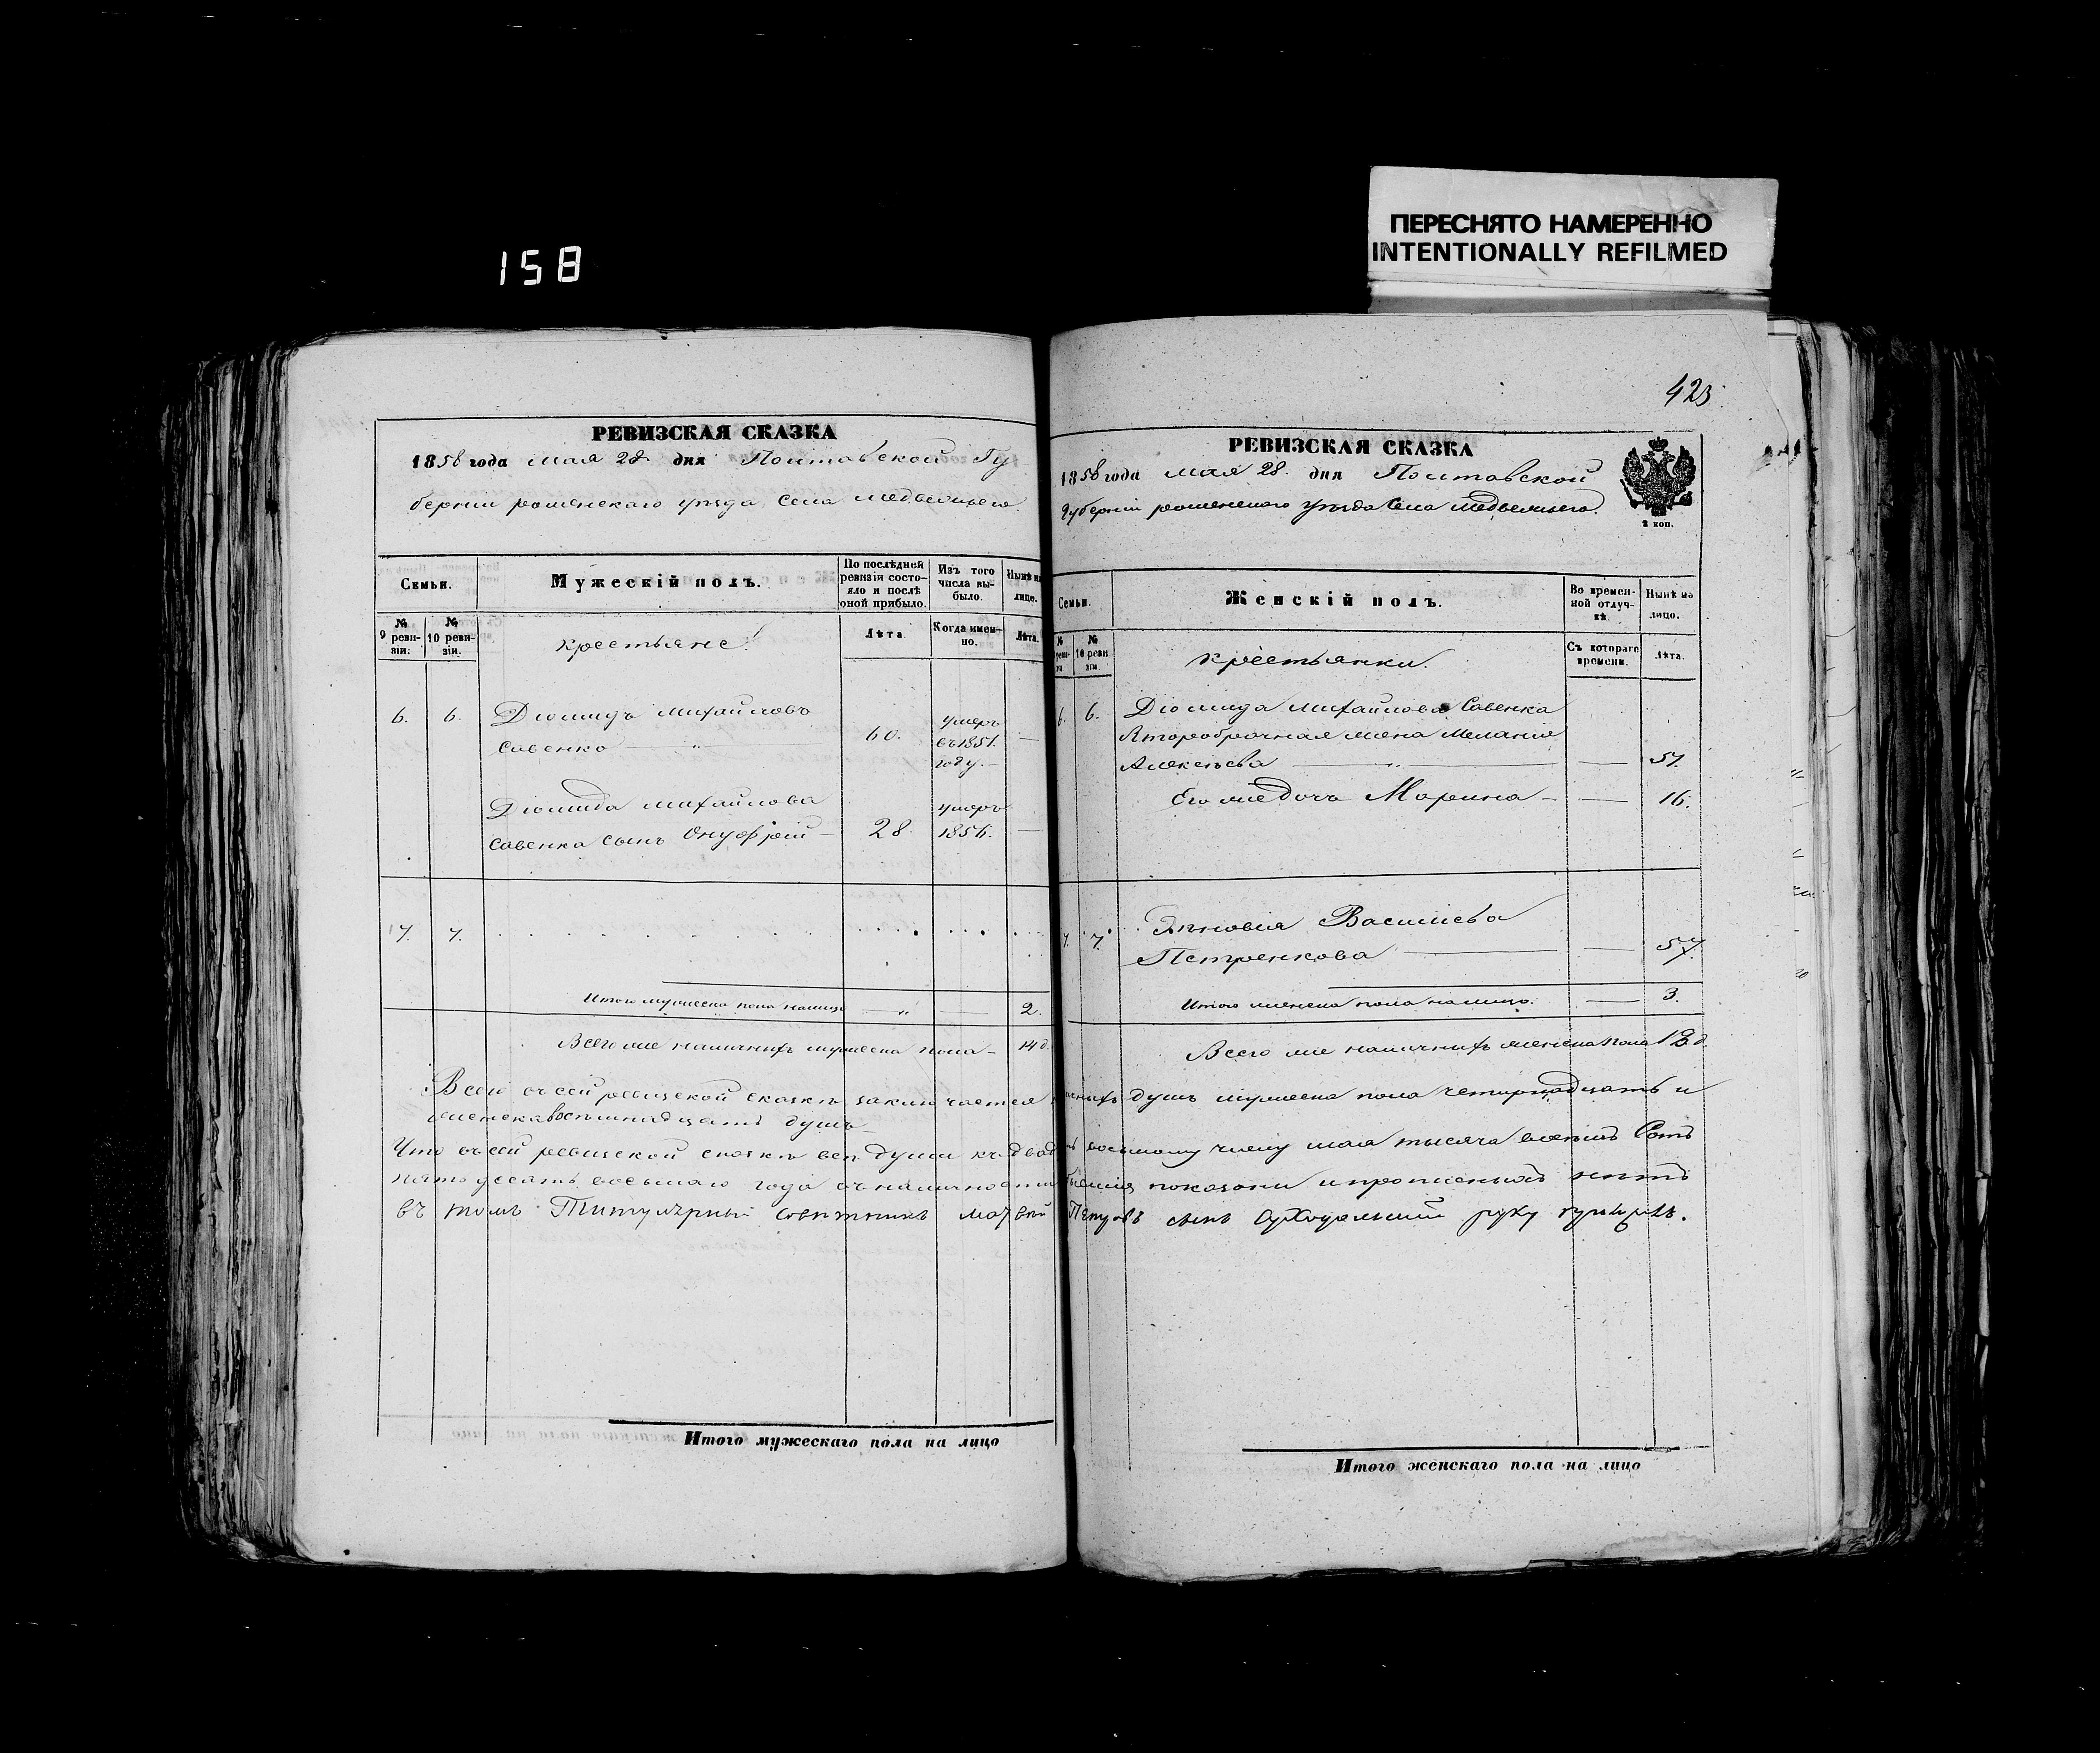 ПЕРЕСНЯТО НАМЕРЕННО
INTENTIONALLY REFILMED
158
РЕВИЗСКАЯ СКАЗКА
1858 года мая 28. дня Полтавской Гу
берніи роменскаго уѣзда Села медвежьяго
Семьи.
Мужескій полъ.
По послѣдней ревизіи состо-
яло и послѣ
оной прибыло.
Изъ того
числа вы-
было.
Нынѣ на
лице.
№
9 реви-
зіи.
№
10 реви-
зіи.
крестьяне
Лѣта
Когда имен-
но.
Лѣта.
6. 6. Діомидъ михайловъ
савенко — 60. умеръ
въ 1851.
году. —
Діомида михайлова
савенка сынъ Онуфрій — 28. умеръ
185
7. 7.
Итого мужеска пола налицо — 2.
Всего же наличныхъ мужеска пола — 14 д.
423
РЕВИЗСКАЯ СКАЗКА
1858 года мая 28. дня Полтавской
Губерніи роменскаго уѣзда Села медвежьяго.
2 коп.
Семьи.
Женскій полъ.
Во времен-
ной отлуч-
кѣ.
Нынѣ на
лицо.
№
реви
зіи
№
10 реви
зіи.
крестьянки.
Съ котораго
времени.
Лѣта.
6. 6. Діомида михайлова Савенка
второбрачная жена Меланія
Алексѣева — 51.
Его же дочь Марина — 16.
7. 7. Васильева
Петренкова — 57.
Итого женска пола налицо. — 3.
Всего же наличныхъ женска пола 18 д.
Всего въ сей ревизской сказкѣ заключается наличныхъ душъ мужеска пола четырнадцать и
женска восемнадцать душъ
Что въ сей ревизской сказкѣ всѣ души къ двадцать восьмому числу мая тысяча восемь Сотъ
пятьдесятъ восьмаго года въ наличности бывшія показаны и прописныхъ нѣтъ
въ томъ Титулярный совѣтникъ Матвѣй Петровъ сынъ руку приложилъ.
Итого мужескаго пола на лицо
Итого женскаго пола на лицо